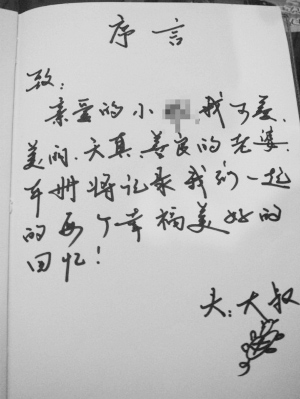 序言
致:
亲爱的小 .我可爱.
美丽.天真.善良的老婆.
本册将记录我们一起
的每个幸福美好的
回忆!
夫:大叔